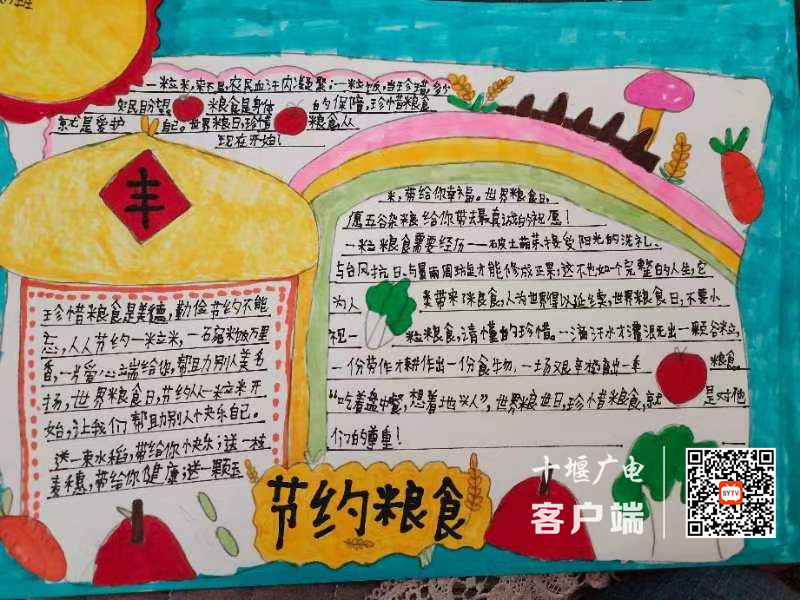 一粒米,来不易,农民血汗肉凝聚;一粒饭,当珍惜,多少
奴民盼望 粮食是身体 的保障,珍惜粮食
就是爱护 自己。世界粮日,珍惜 粮食从
现在开始!
丰
珍惜粮食是美德,勤俭节约不能
忘,人人节约一米立米,一石宛米饭万里
香,一片爱心端给你,帮助别人美名
扬,世界粮食日,节约从一米立米开
始,让我们帮助别人个快乐自己。
送一束水稻,带给你快乐;送一枝
麦穗,带给你健康;送一颗玉
米,带给你幸福。世界粮食日,
愿五谷杂粮给你带来最真诚的祝愿!
一粒粮食需要经历——破土萌芽接受阳光的洗礼、
为人 类带来了粮食,人为世界得以延续,世界粮食日,不要小
视一 粒粮食,请懂的珍惜。一滴汗水才灌溉出一颗谷粒,
一份劳作才耕作出一份食物,
粮食
“吃着盘中餐,想着地头人”,世界粮世日,珍惜粮食,就 是对他
们的尊重!
节约粮食
十堰广电
客户端
SYTV